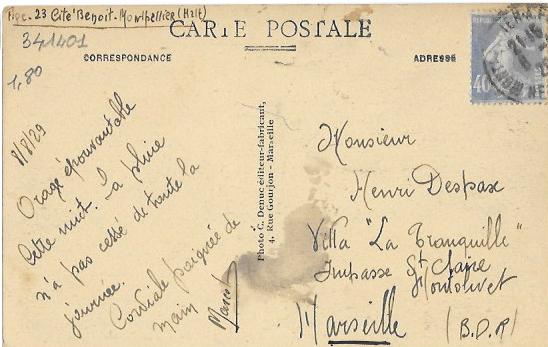 23 Cité Benoit - Montpellier (Hlt)
CARTE POSTALE
341401
1,80
CORRESPONDANCE
ADRESSE
40
8/8/29
Orage épouvantable
Cette nuit. La pluie
n'a pas cessé de toute la
journée.
Cordiale poignée de
main
Photo C. Denuc éditeur-fabricant,
4, Rue Gourjon - Marseille
Monsieur
Henri Despax
Villa "La Tranquille"
Impasse St Claire
Montolivet
Marseille (B.D.R)